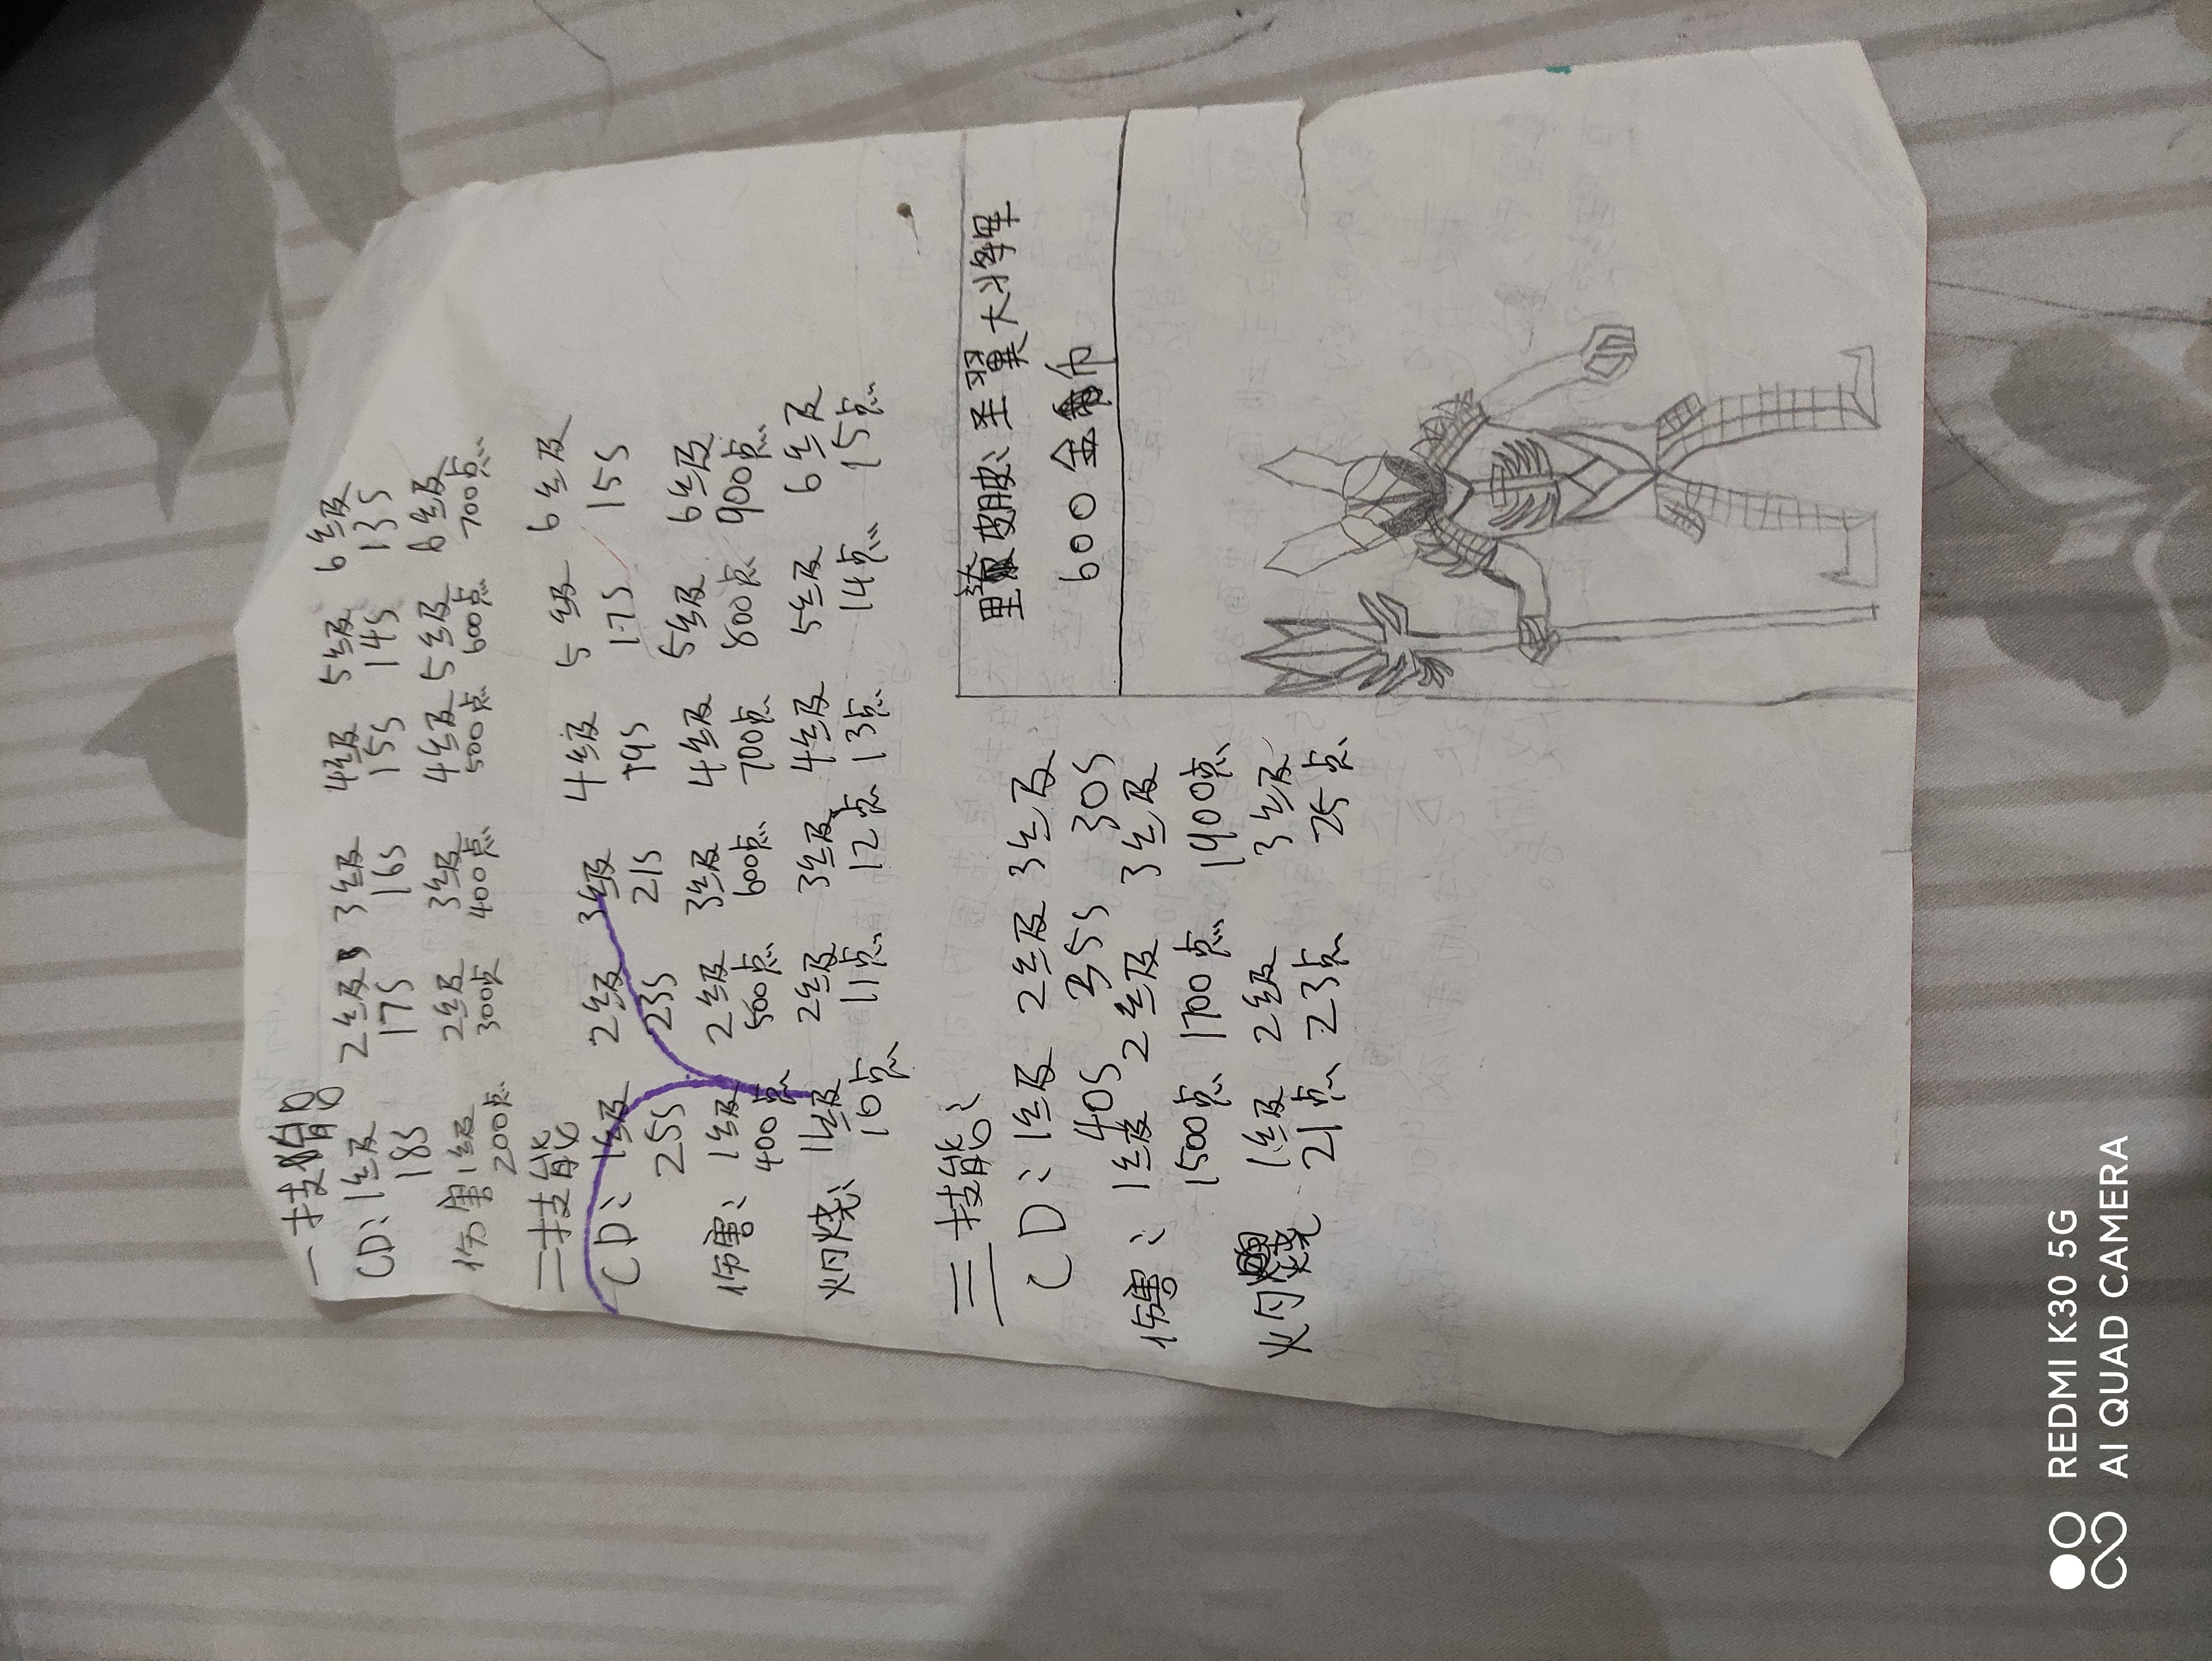 一技能
CD: 1级 2级 3级 4级 5级 6级
18s 17s 16s 15s 14s 13s
伤害 1级 2级 3级 4级 5级 6级
200点 300点 400点 500点 600点 700点
二技能
CD: 1级 2级 3级 4级 5级 6级
25s 23s 21s 19s 17s 15s
伤害: 1级 2级 3级 4级 5级 6级
400点 500点 600点 700点 800点 900点
灼烧: 1级 2级 3级 4级 5级 6级
10点 11点 12点 13点 14点 15点
三技能:
CD: 1级 2级 3级
40s 35s 30s
伤害: 1级 2级 3级
1500点 1700点 1900点
灼烧 1级 2级 3级
21点 23点 25点
皮肤: 圣翼大将军
600 金币
REDMI K30 5G
AI QUAD CAMERA